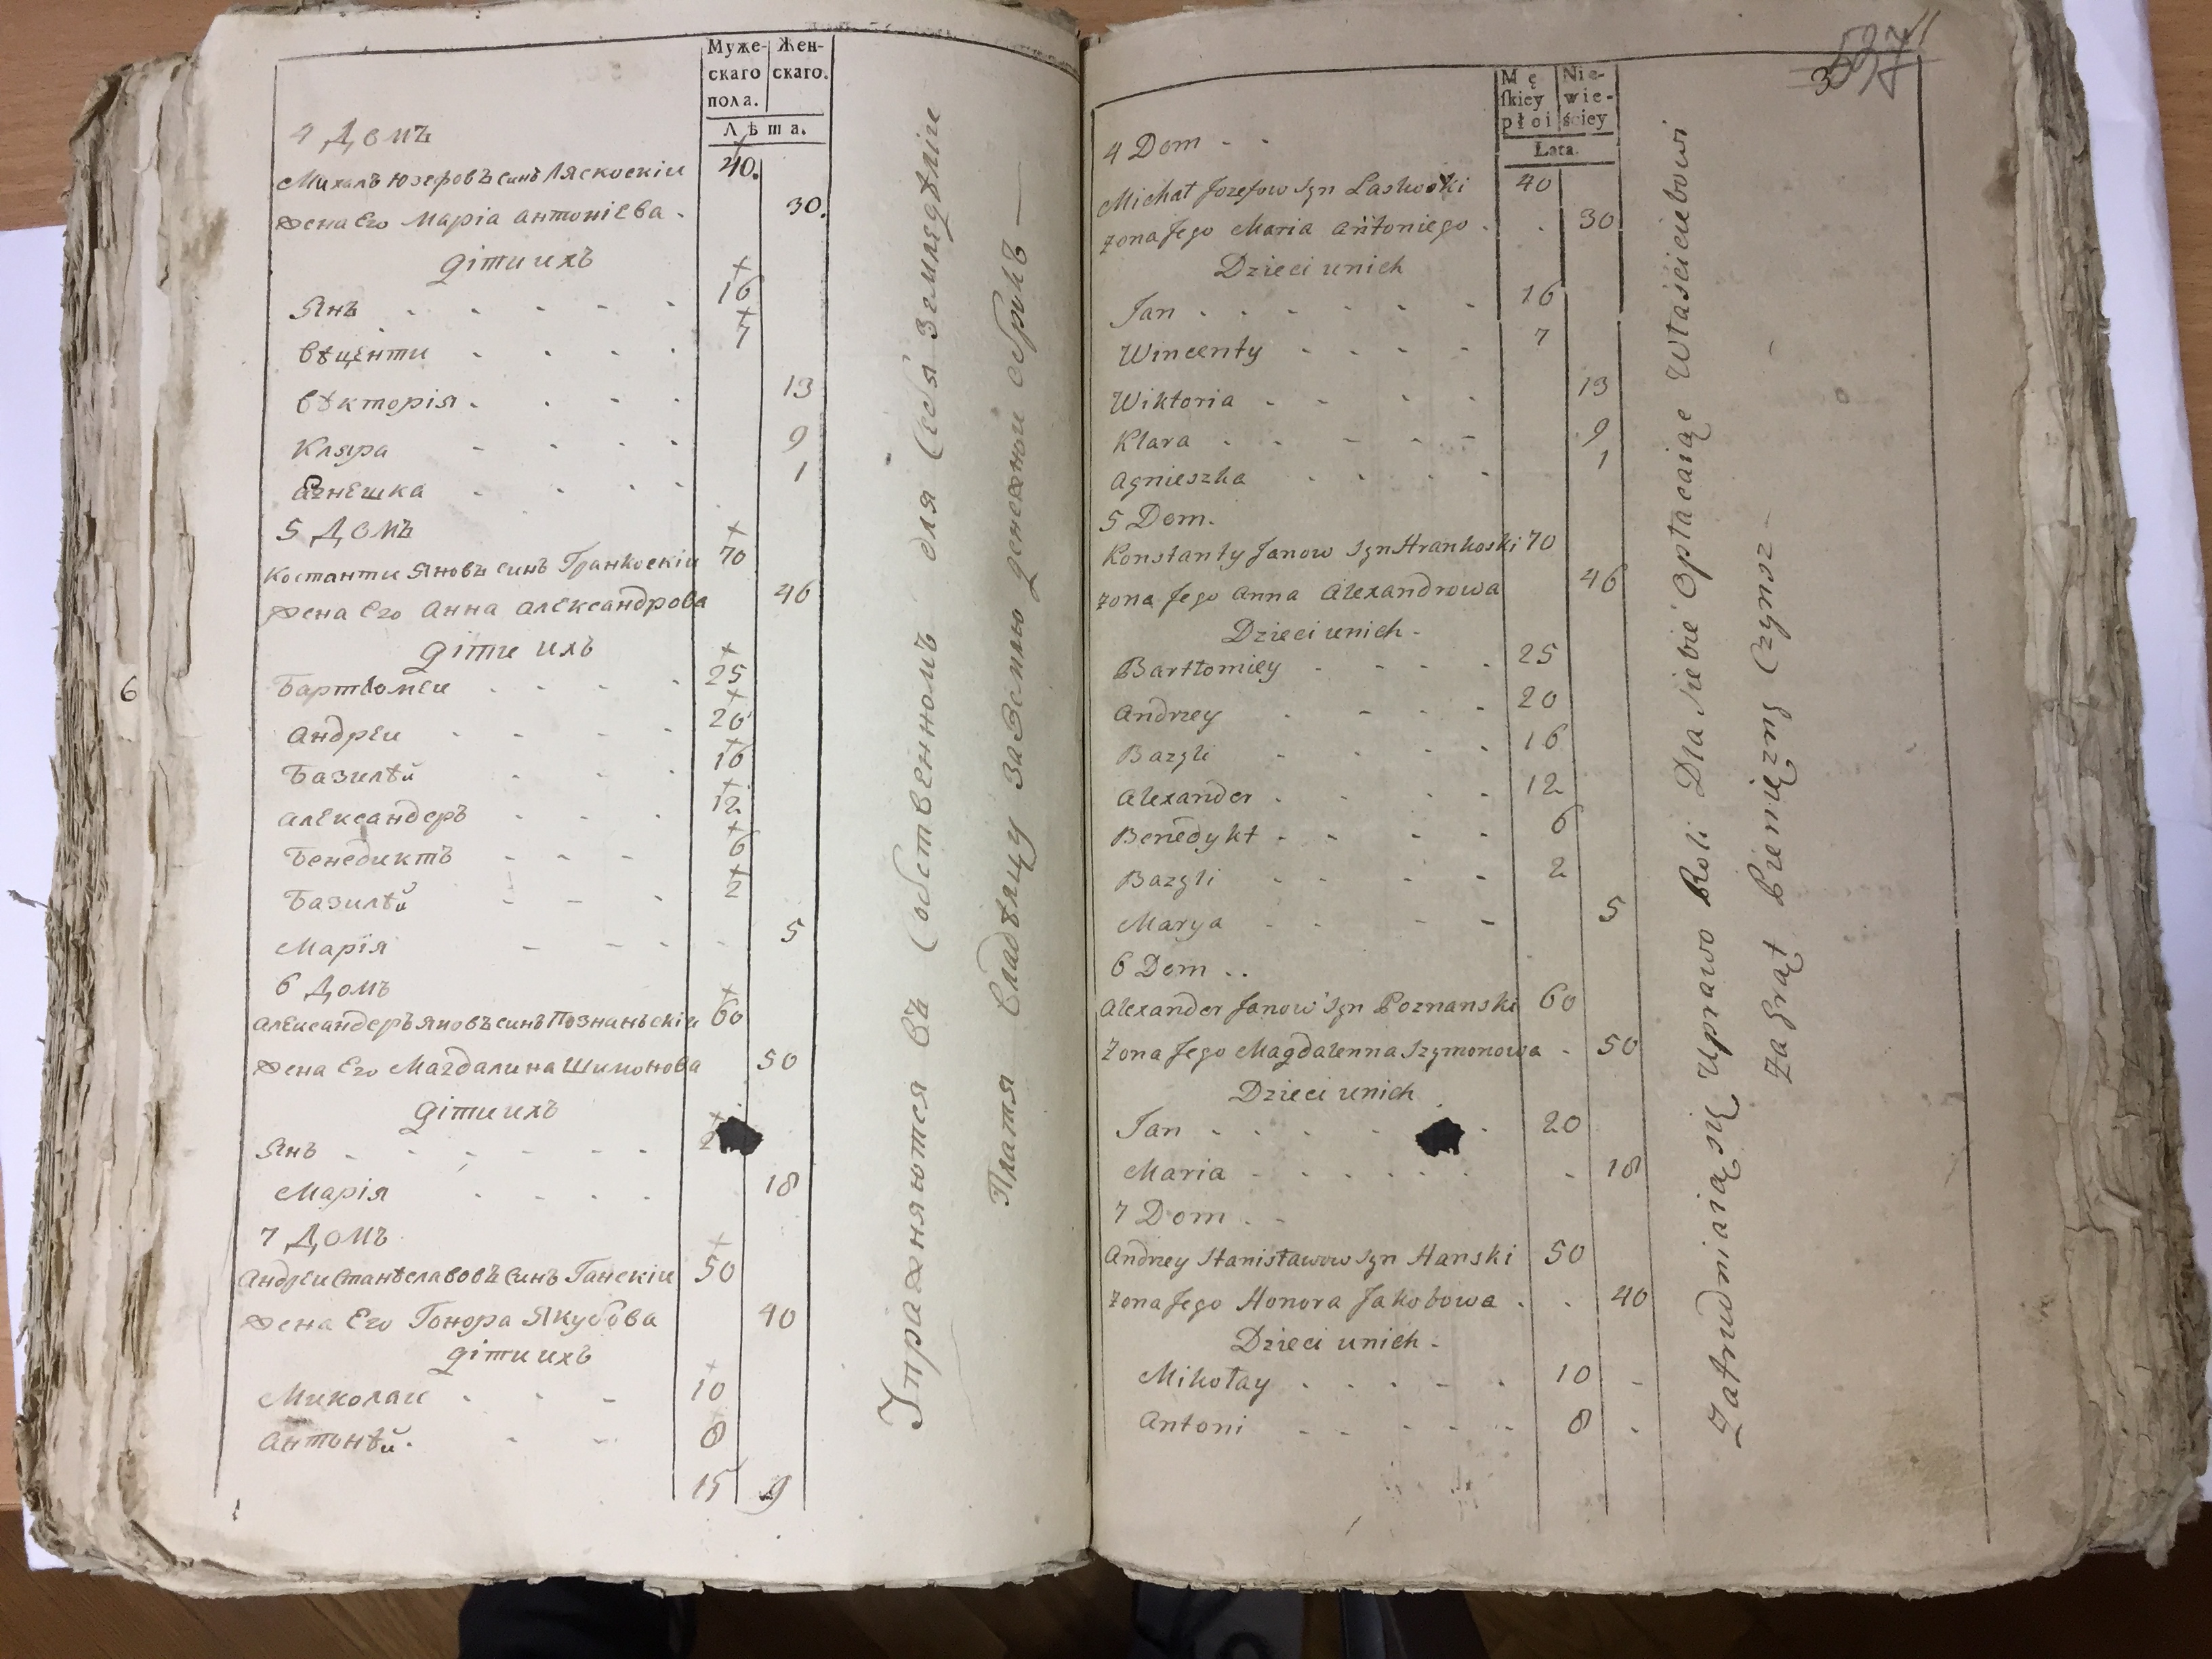 Муже- Жен-
скаго скаго.
пола.
Лѣта.
4 Домъ
Михалъ Юзефовъ синъ Ляскоскіи 40.
Жена Его Маріа Антоніева . 30.
діти ихъ
Янъ . . . . . . 16
Вѣценти . . . . 7
Вѣкторія . . . . 13
Кляра - . . . 9
Агнешка . . . . 1
5 Домъ
Костанти Яновъ синъ Гранкоскіи 70
Жена Его Анна Александрова 46
діти ихъ
Бартломеи . . . . 25
Андреи . . . . 20
Базилѣй . . . 16
Александеръ . . . 12
Бенедиктъ - - - 6
Базилѣй - - . 2
Марія - - - . 5
6 Домъ
Александеръ Яновъ синъ Познаньскіи 60
Жена Его Магдалина Шимонова 50
діти ихъ
Янъ . - - - - - 2
Марія . . . . 18
7 Домъ
Андреи Станѣславовъ синъ Ганскіи 50
Жена Его Гонора Якубова 40
діти ихъ
Миколаи . - - 10
Антонѣй . - - 8
15 9
Упражняются въ собственномъ для себя земледѣліи
Платя владѣлцу завемлю денежной оброкъ —
6
537
3
Mę Nie-
skiey wie-
płoi ściey
Lata.
4 Dom . .
Michał Jozefow syn Laskoski 40
żona Jego Maria Antoniego . . 30
Dzieci unich
Jan . . . . . . 16
Wincenty . . . . 7
Wiktoria . - . . 13
Klara . . - - - 9
Agnieszka . . . . 1
5 Dom.
Konstanty Janow syn Hrankoski 70
żona Jego Anna Alexandrowa 46
Dzieci unich -
Bartłomiey . . . . 25
Andrzey . - - . 20
Bazyli - - . . 16
Alexander . . . . 12
Benedykt - - - - 6
Bazyli . . - - 2
Marya . . - - 5
6 Dom . .
Alexander Janow syn Poznanski 60
Żona Jego Magdalenna Szymonowa . 50
Dzieci unich
Jan . . . . . 20
Maria - - . . . . . 18
7 Dom . -
Andrzey Stanisławow syn Hanski 50
żona Jego Honora Jakobowa . . 40
Dzieci unich -
Mikołay . . . . . 10 -
Antoni . . . . . 8 .
Zatrudniaią się Uprawo Roli Dla siebie Opłacaiąc Właścicielowi
Za Grąt Pieniężny Czynsz -